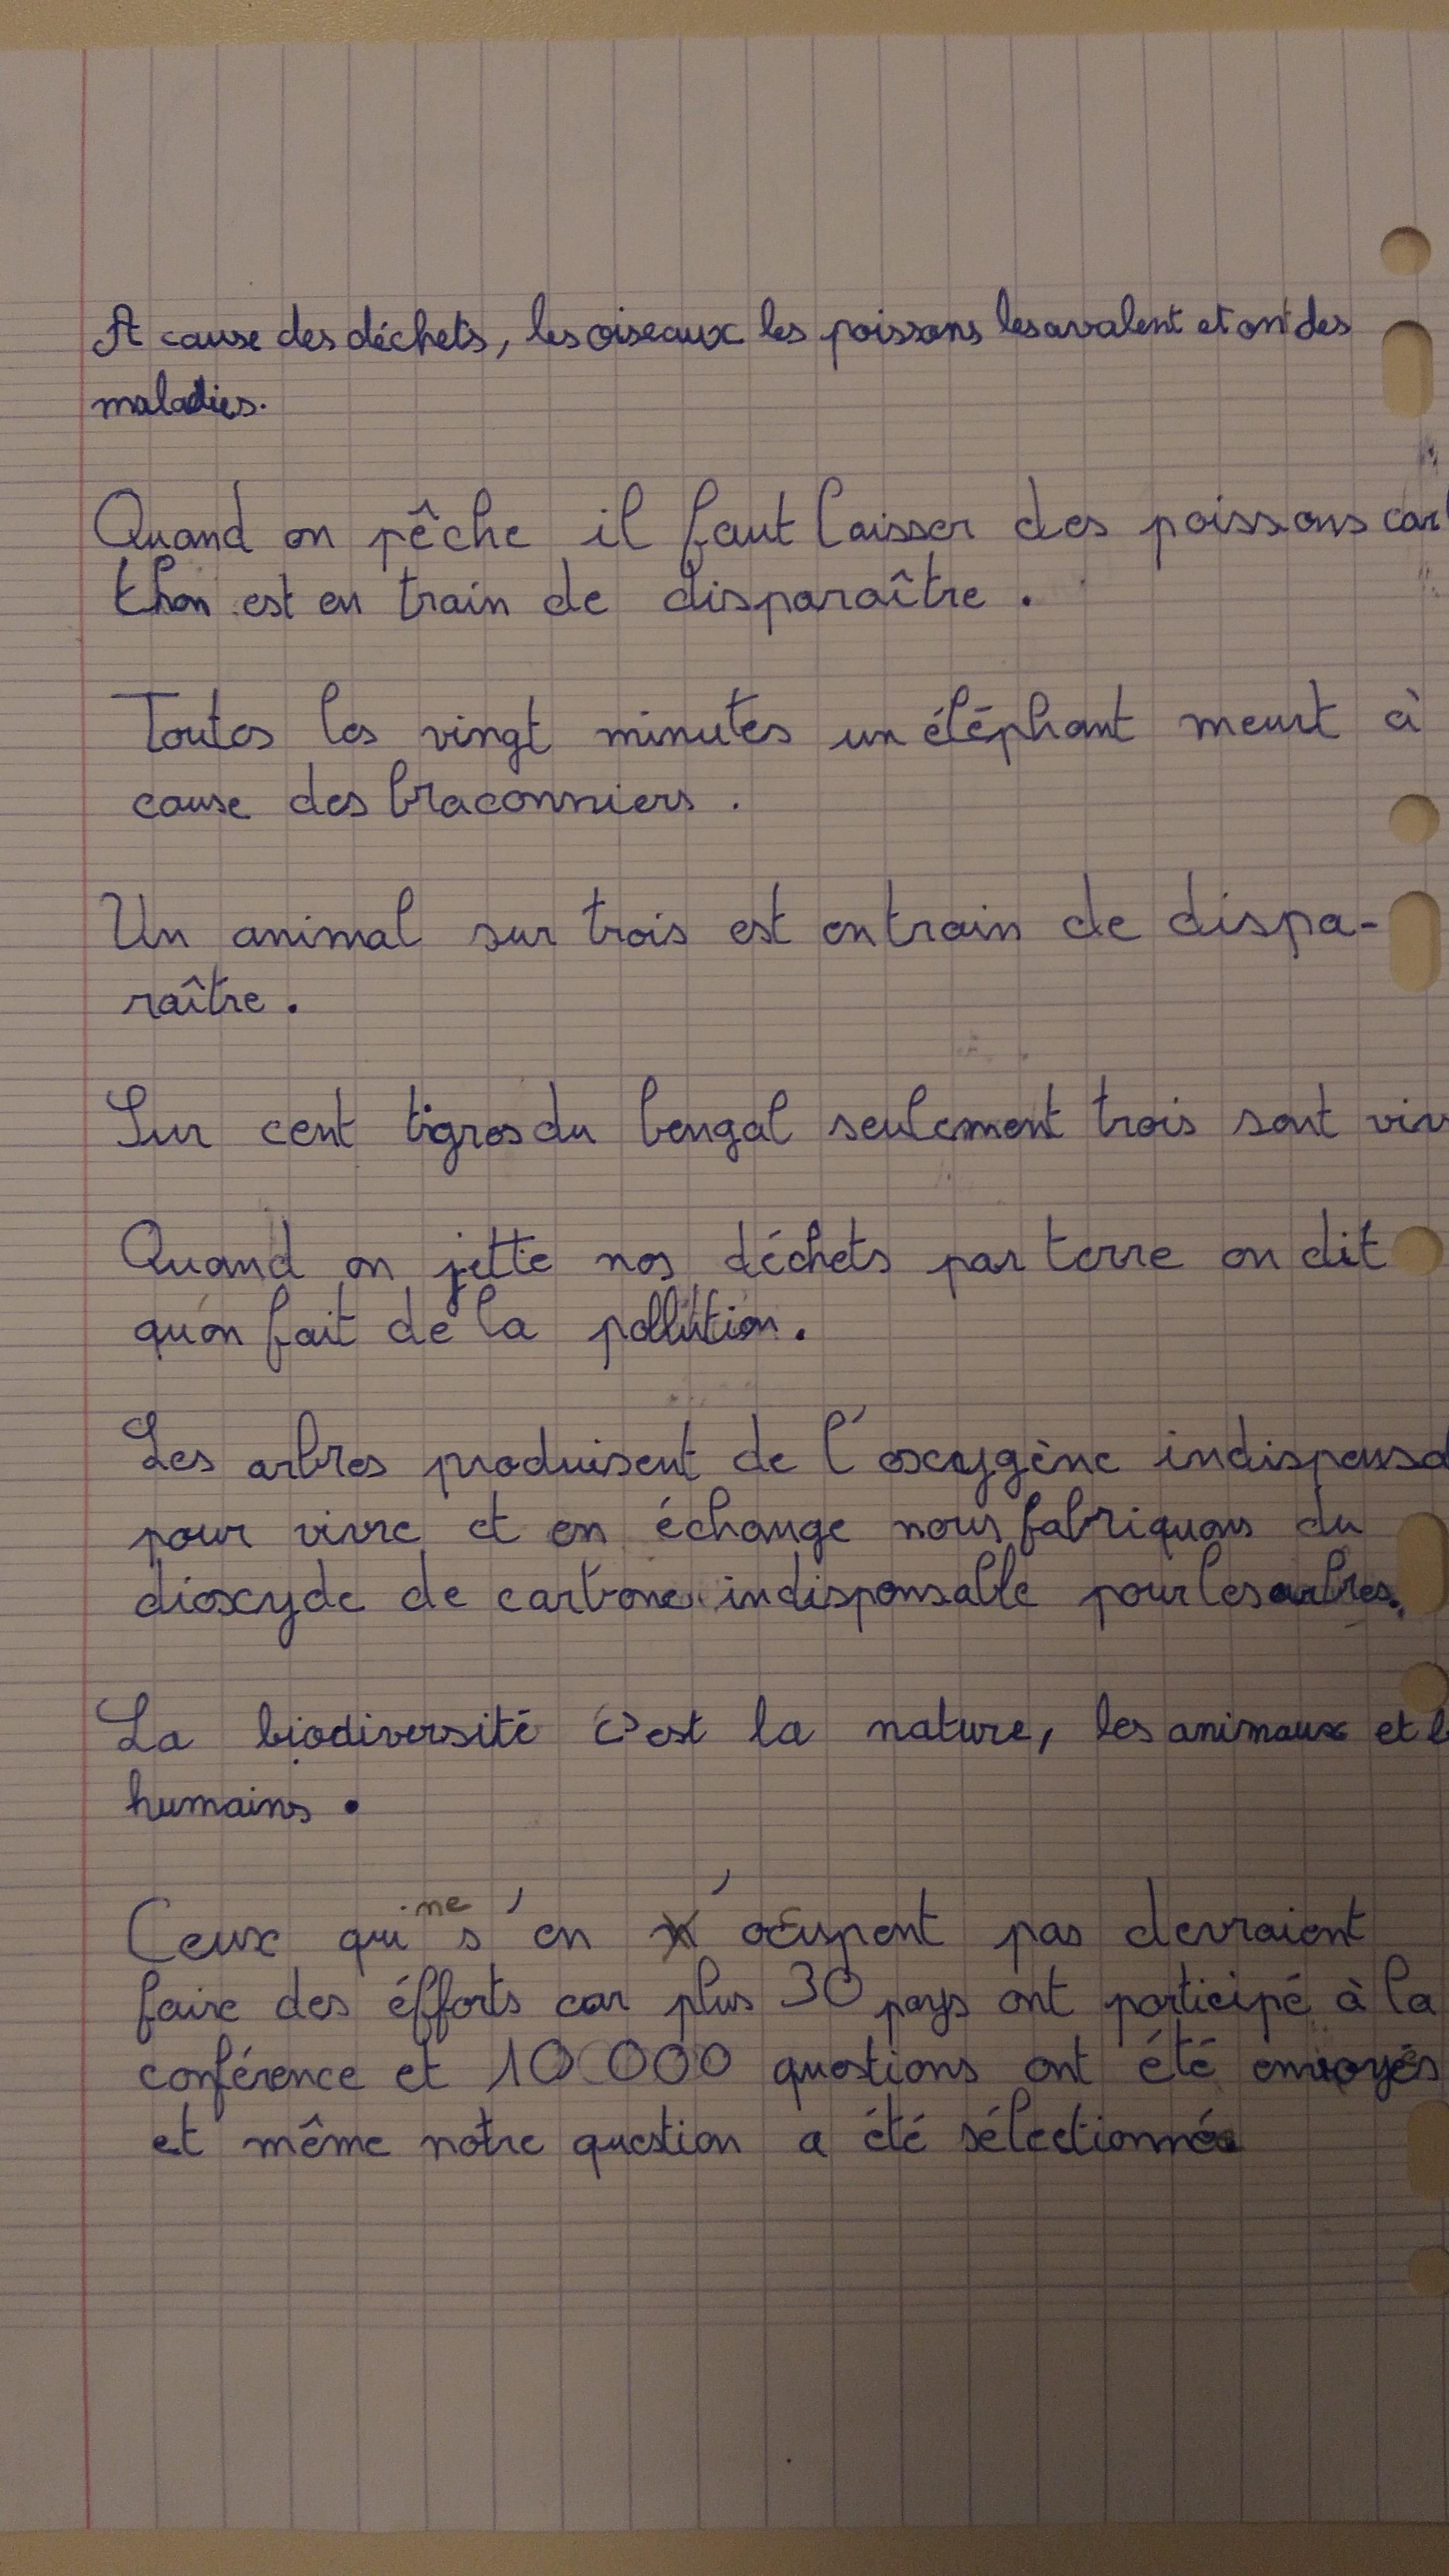 A cause des déchets, les oiseaux les poissons les avalent et ont des
maladies.
Quand on pêche il faut laisser des poissons car
thon est en train de disparaître.
Toutes les vingt minutes un éléphant meurt à
cause des braconniers.
Un animal sur trois est en train de dispa-
raître.
Sur cent tigres du bengal seulement trois sont
Quand on jette nos déchets par terre on dit
qu'on fait de la pollution.
Les arbres produisent de l'oxygène
pour vivre et en échange nous fabriquons du
dioxyde de carbone indispensable pour les arbres.
La biodiversité c'est la nature, les animaux et
humains.
Ceux qui ne s'en occupent pas devraient
faire des éfforts car plus 30 pays ont participé à la
conférence et 10 000 questions ont été envoyés
et même notre question a été sélectionnée